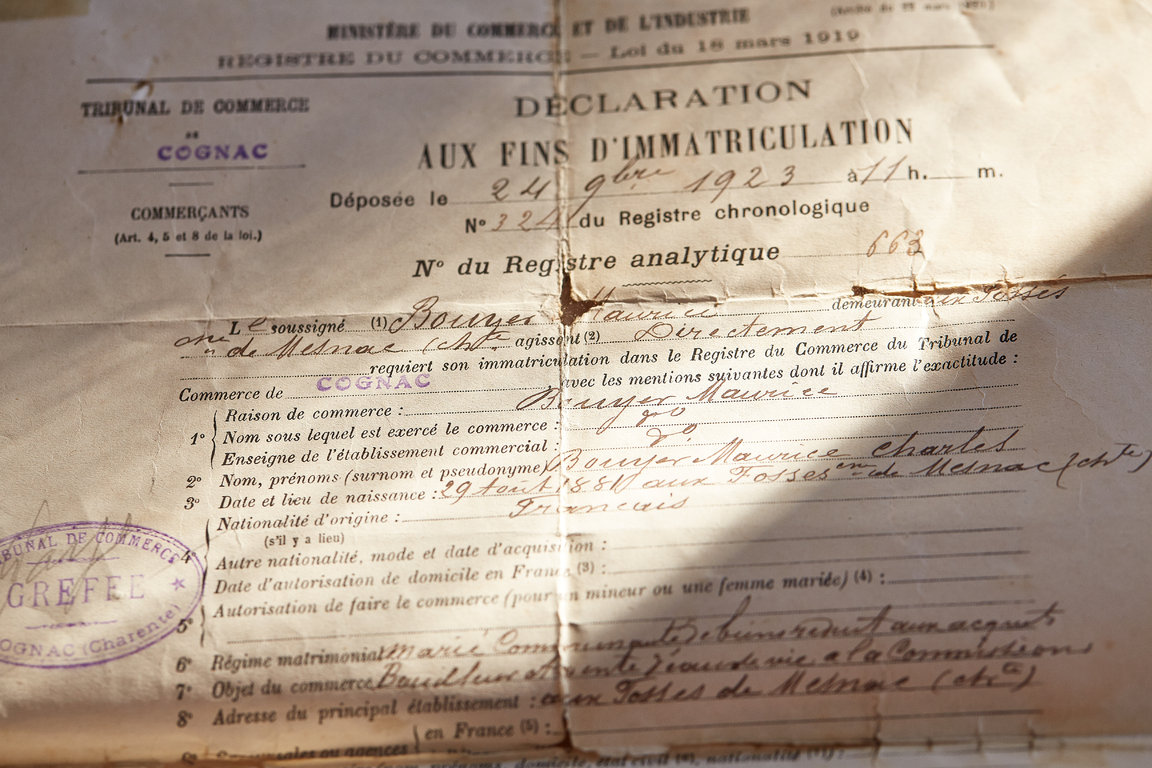 MINISTÈRE DU COMMERCE ET DE L'INDUSTRIE
REGISTRE DU COMMERCE — Loi du 18 mars 1919
TRIBUNAL DE COMMERCE
DE
COGNAC
COMMERÇANTS
(Art. 4, 5 et 8 de la loi.)
DÉCLARATION
AUX FINS D'IMMATRICULATION
Déposée le 24 9bre 1923 à 11 h. m.
N° 324 du Registre chronologique
N° du Registre analytique 663
Le soussigné (1) Bouyer Maurice demeurant aux Fossés
cne de Mesnac (Chte agissant (2) Directement
requiert son immatriculation dans le Registre du Commerce du Tribunal de
Commerce de COGNAC avec les mentions suivantes dont il affirme l'exactitude :
1° Raison de commerce : Bouyer Maurice
Nom sous lequel est exercé le commerce : do
Enseigne de l'établissement commercial : do
2° Nom, prénoms (surnom et pseudonyme) Bouyer Maurice Charles
3° Date et lieu de naissance : 29 Août 1881 aux Fosses cne de Mesnac (Chte)
4° Nationalité d'origine : Francais
(s'il y a lieu)
Autre nationalité, mode et date d'acquisition :
Date d'autorisation de domicile en France (3) :
5° Autorisation de faire le commerce (pour un mineur ou une femme mariée) (4) :
6° Régime matrimonial marié Communauté de biens réduit aux acquets
7° Objet du commerce Bouilleur et vente d'eau de vie a la Commission
8° Adresse du principal établissement : aux Fosses de Mesnac (Chte)
en France (5) :
Succursales ou agences
TRIBUNAL DE COMMERCE
GREFFE
COGNAC (Charente)